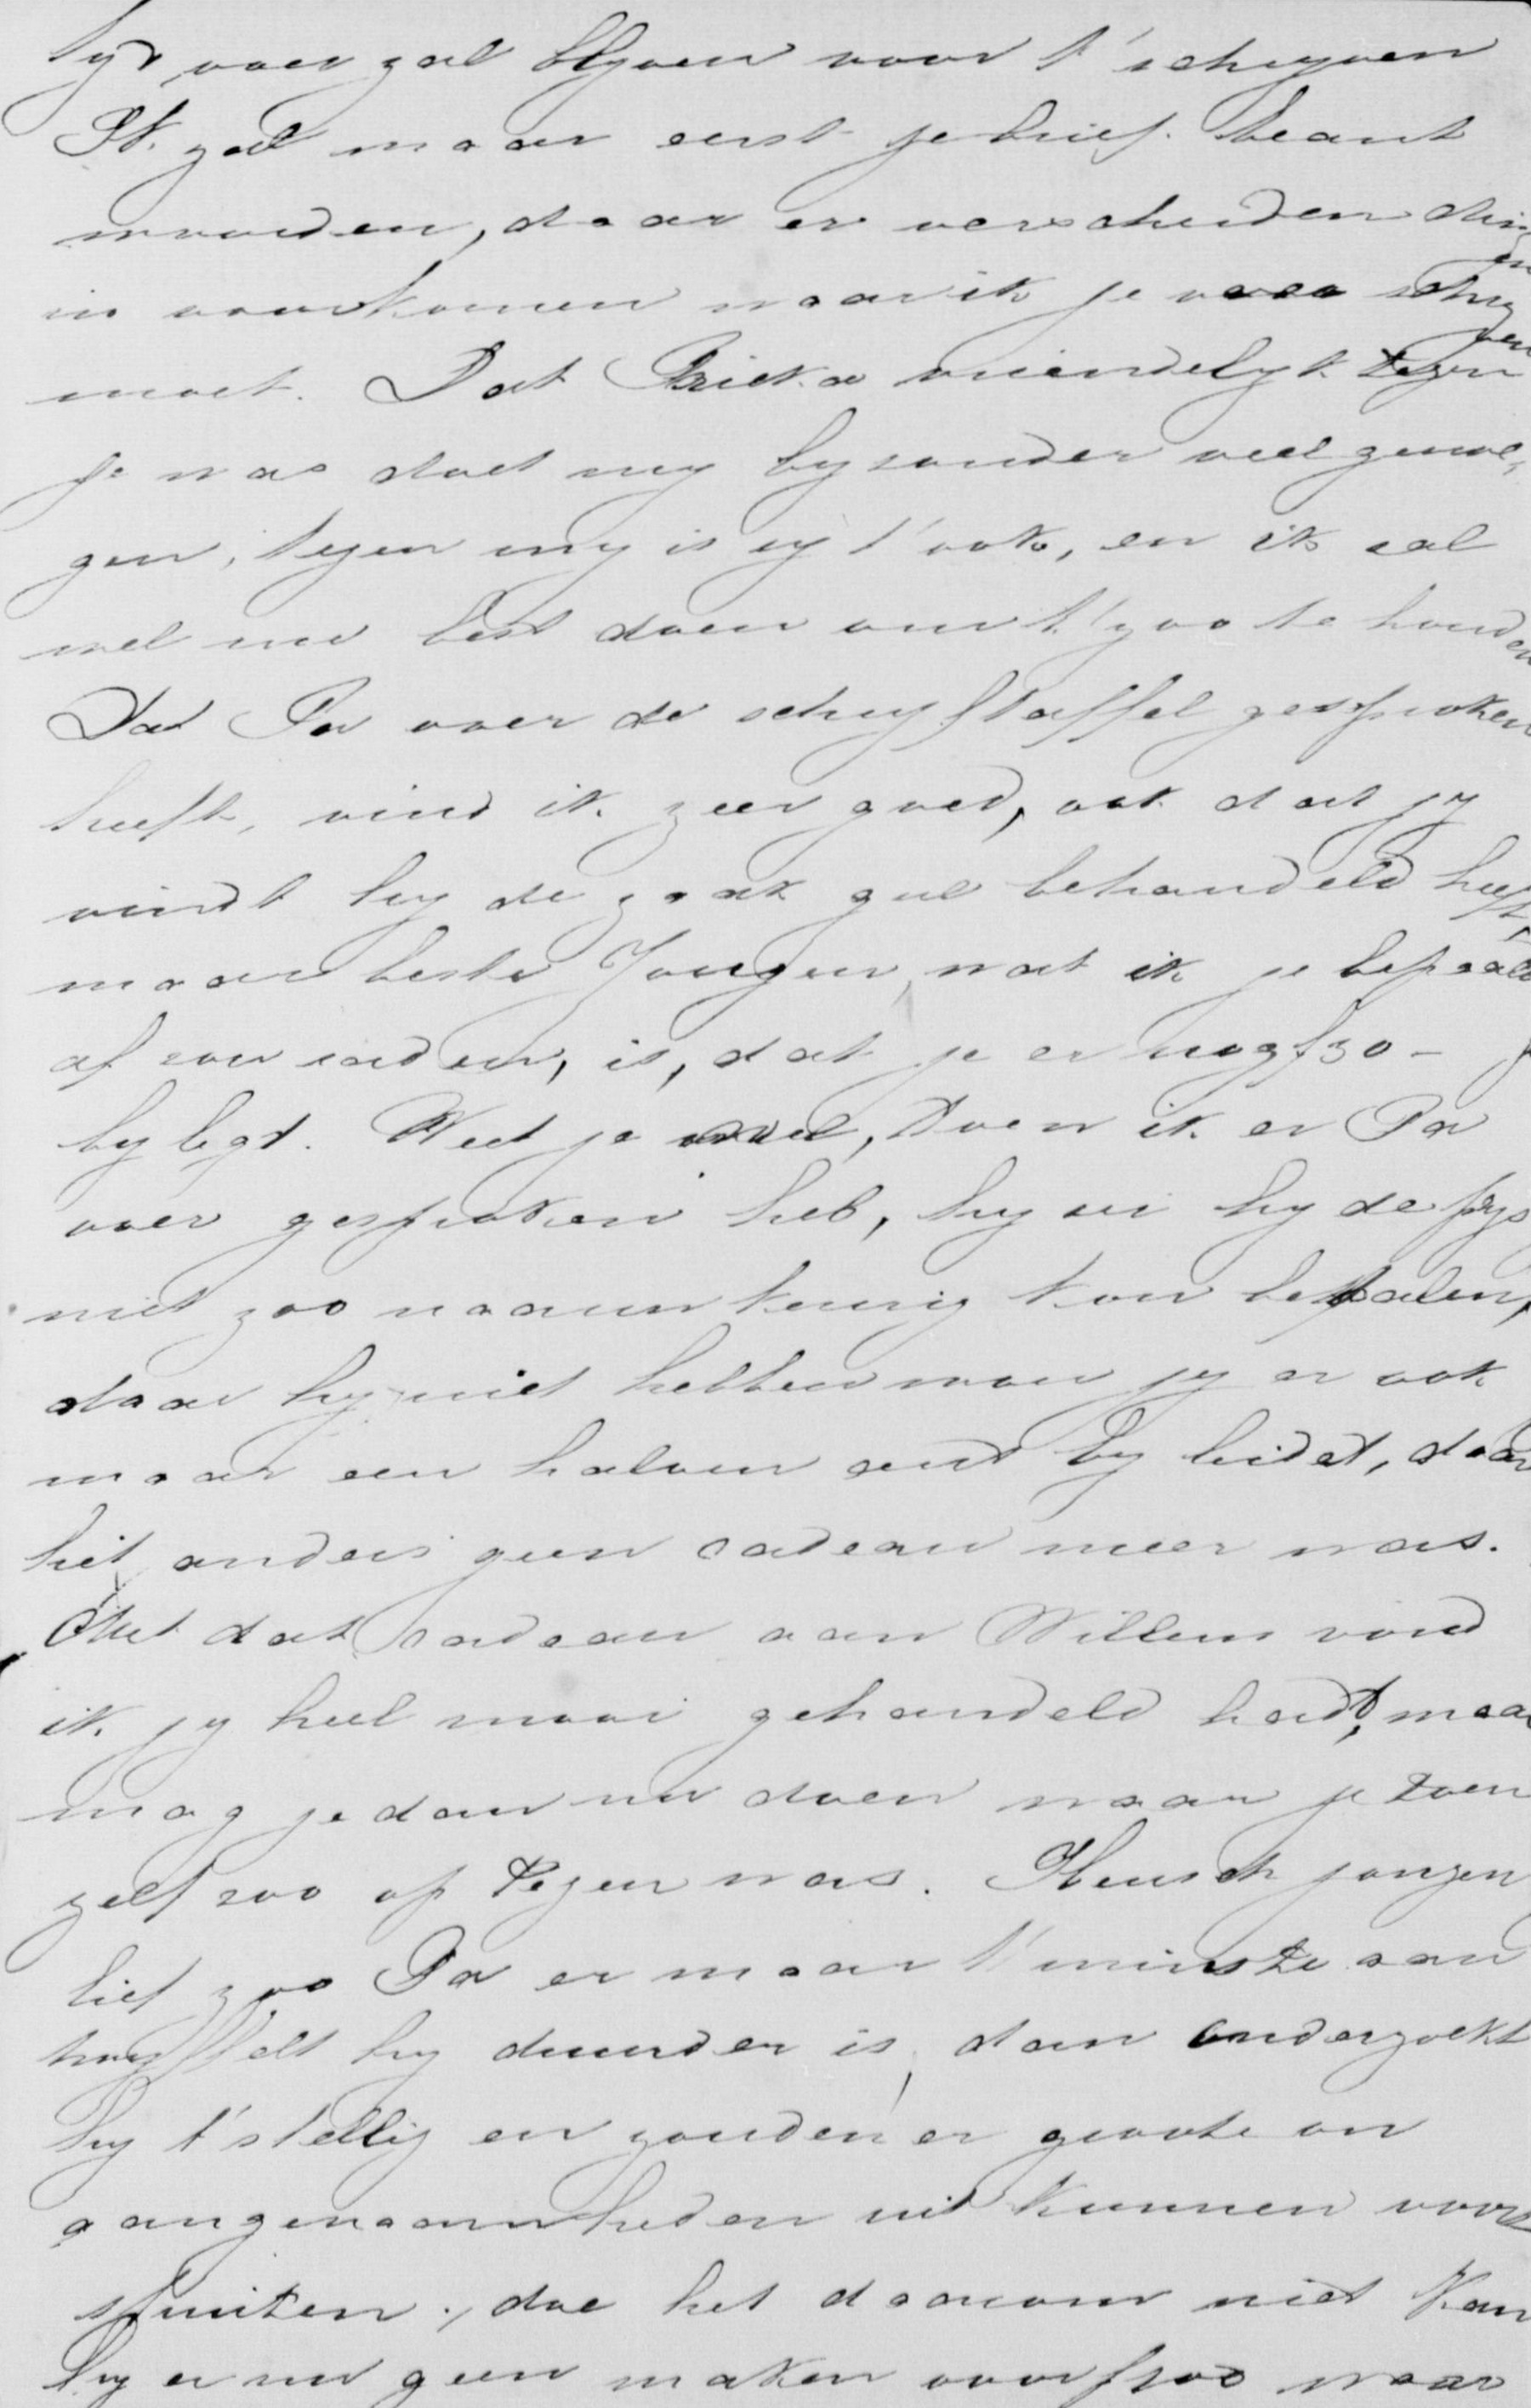 tyd over zal blyven voor t' schryven
Ik zal maar eerst je brief beant
woorden, daar er verscheiden dingen
in voorkomen waar ik je over schryven
moet. Dat Ricka vriendelyk tegen
je was doet my byzonder veel genoe,
gen, tegen my is zy t' ook, en ik zal
wel me best doen om t' zoo te houden
Dat Pa over de schryftaffel gesproken
heeft, vind ik zeer goed, ook dat jy
vindt hy de zaak gul behandeld heeft,
maar beste Jongen, wat ik je bepaald
af zou raden, is, dat je er nog f30 -
by legt. Weet je wel, toen ik er Pa
over gesproken heb, hy zei hy de prys
niet zoo naauwkeurig kon bepalen,
daar hy niet hebben wou jy er ook
maar een halven cent by leidet, daar
het anders geen cadeau meer was.
Met dat cadeau aan Willem vond
ik jy heel mooi gehandeld hadt, maar
mag je dan nu doen waar je toen
zelf zoo op tegen was. Heusch jongen
lief zoo Pa er maar t' minste aan
twyffelt hy duurder is, dan onderzoekt
hy t' stellig en zouden er groote on
aangenaamheden uit kunnen voort
spruiten, doe het daarom niet kan
hy er nu geen maken voor naar